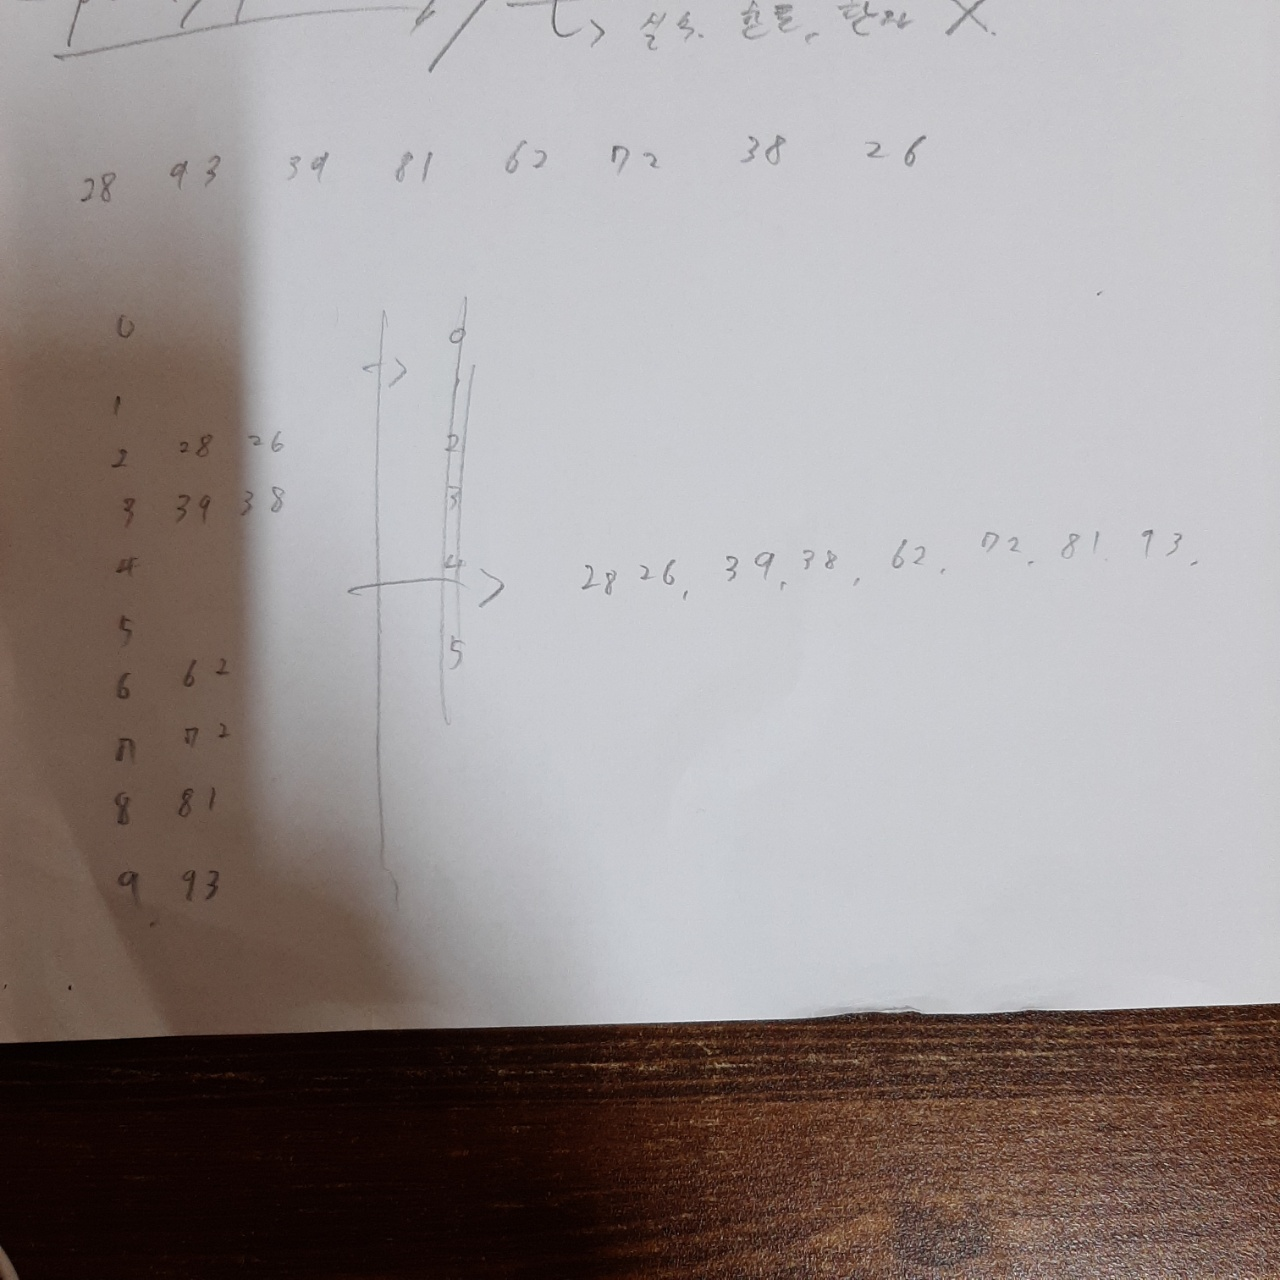 실수. 한글, 한자 X.
28 93 39 81 62 72 38 26
0 0
1
2 28 26 2
3 39 38 3
4 4
28 26, 39, 38, 62, 72, 81, 93,
5 5
6 62
7 72
8 81
9 93